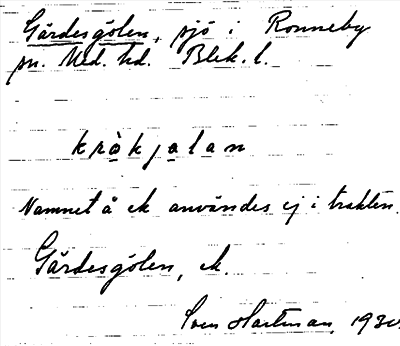 Gärdesgölen, sjö i Ronneby
sn. Med. hd. Blek. l.
kråkjalan
Namnet å ek användes ej i trakten.
Gärdesgölen, ek.
Sven Hartman, 1930.